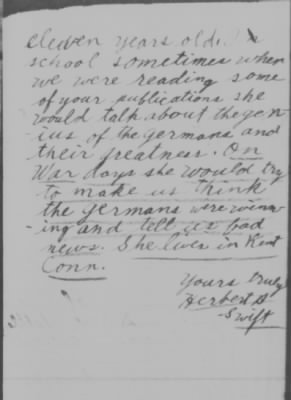 eleven years old. In
school sometimes when
we were reading some
of your publications she
would talk about the gen-
ius of the germans and
their greatness. On
War days she would try
to make us think
the germans were winn-
ing and tell us bad
news. She lives in Kent
Conn.
Yours truly
Herbert D.
Swift